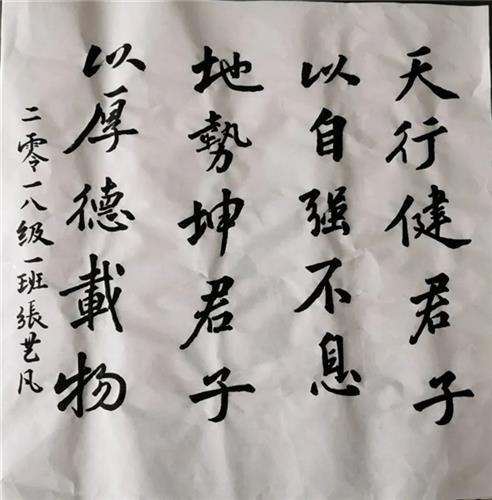 天行健君子
以自强不息
地勢坤君子
以厚德載物
二零一八级一班張艺凡